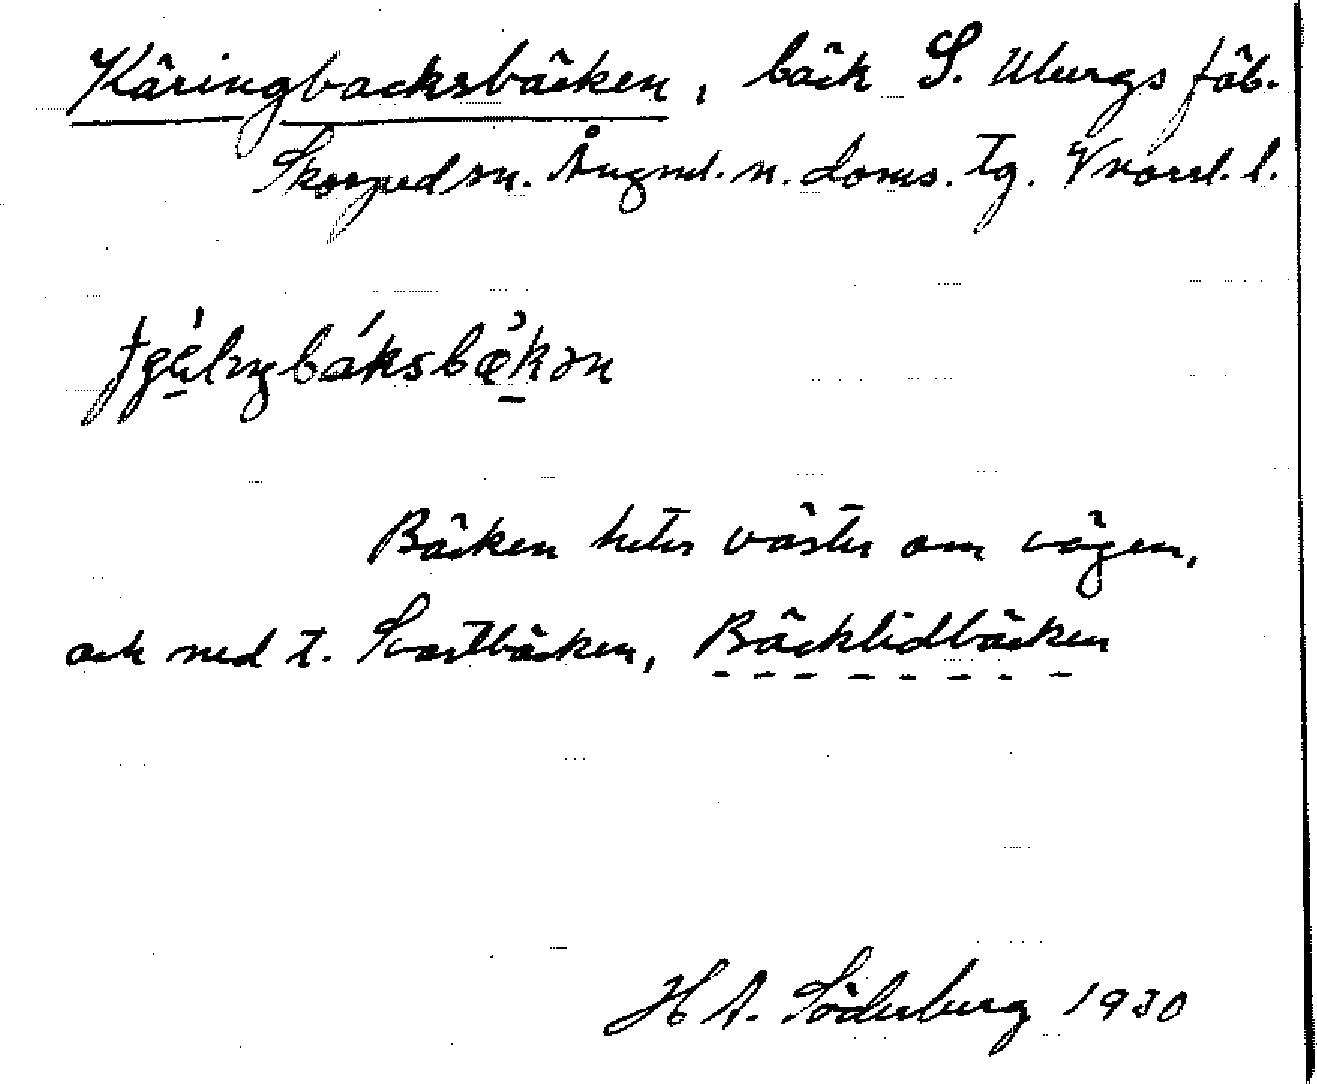 Käringbacksbäcken, bäck S. Ulvrgs fäb.
Skorped sn. Ångml. n. doms. tg. Vnorrl. l.
Bäcken heter väster om vägen,
och ned t. Svartbäcken, Bäcklidbäcken
H A. Söderberg 1930